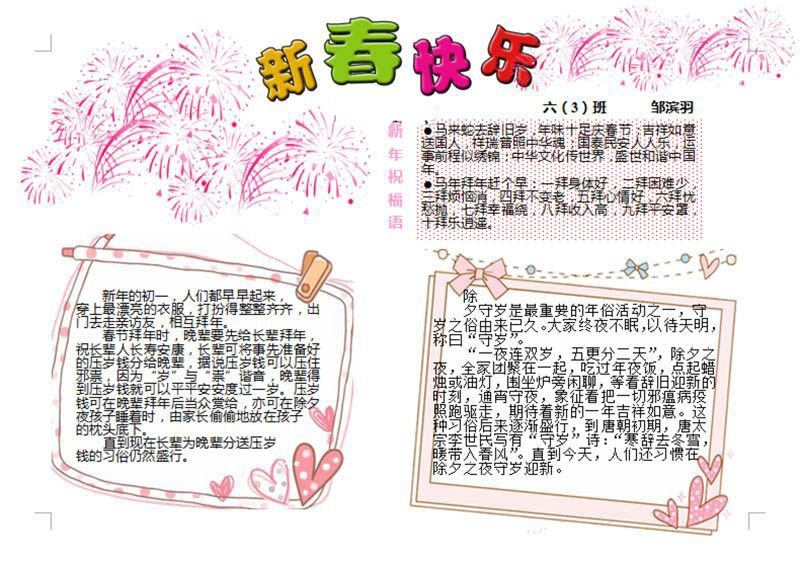 新春快乐
六（3）班 邹滨羽
新年祝福语
●马来蛇去辞旧岁，年味十足庆春节；吉祥如意
送国人，祥瑞普照中华魂；国泰民安人人乐，运
事前程似绣锦；中华文化传世界，盛世和谐中国
年。
●马年拜年赶个早：一拜身体好，二拜困难少，
三拜烦恼消，四拜不变老，五拜心情好，六拜忧
愁抛，七拜幸福绕，八拜收入高，九拜平安罩，
十拜乐逍遥。
新年的初一，人们都早早起来，
穿上最漂亮的衣服，打扮得整整齐齐，出
门去走亲访友，相互拜年。
春节拜年时，晚辈要先给长辈拜年，
祝长辈人长寿安康，长辈可将事先准备好
的压岁钱分给晚辈，据说压岁钱可以压住
邪祟，因为“岁”与“祟”谐音，晚辈得
到压岁钱就可以平平安安度过一岁。压岁
钱可在晚辈拜年后当众赏给，亦可在除夕
夜孩子睡着时，由家长偷偷地放在孩子
的枕头底下。
直到现在长辈为晚辈分送压岁
钱的习俗仍然盛行。
除
夕守岁是最重要的年俗活动之一，守
岁之俗由来已久。大家终夜不眠，以待天明，
称曰“守岁”。
“一夜连双岁，五更分二天”，除夕之
夜，全家团聚在一起，吃过年夜饭，点起蜡
烛或油灯，围坐炉旁闲聊，等着辞旧迎新的
时刻，通宵守夜，象征着把一切邪瘟病疫
照跑驱走，期待着新的一年吉祥如意。这
种习俗后来逐渐盛行，到唐朝初期，唐太
宗李世民写有“守岁”诗：“寒辞去冬雪，
暖带入春风”。直到今天，人们还习惯在
除夕之夜守岁迎新。